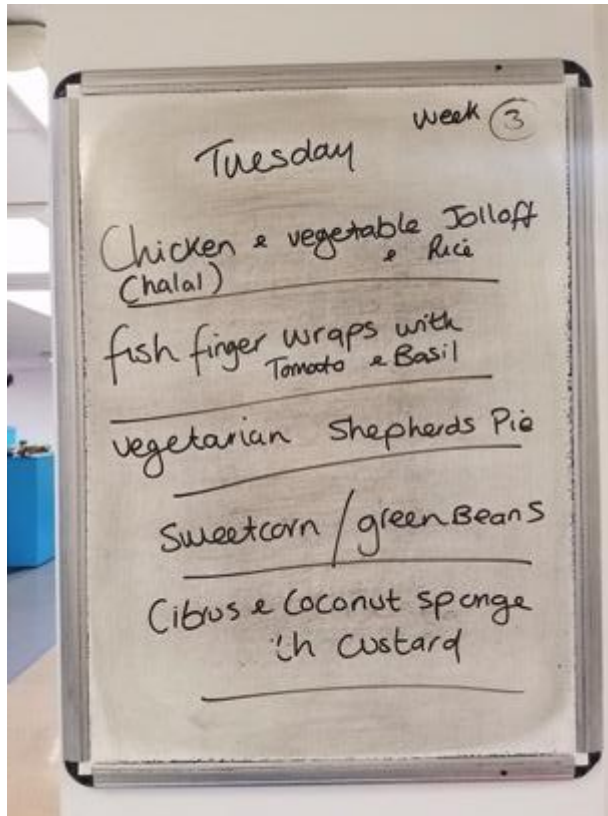 week 3
Tuesday
Chicken & vegetable Jolloff
& Rice
(halal)
fish finger wraps with
Tomato & Basil
vegetarian Shepherds Pie
Sweetcorn / green Beans
Citrus & Coconut sponge
custard